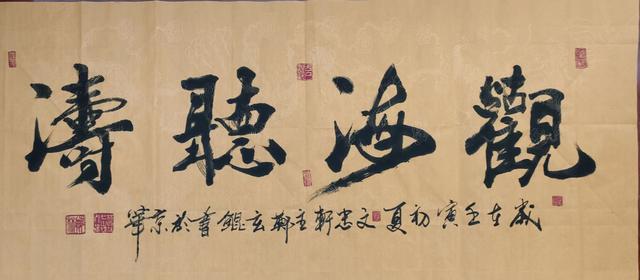 觀海聽濤
歲在壬寅初夏文忠軒主鄭玄錕書於京華